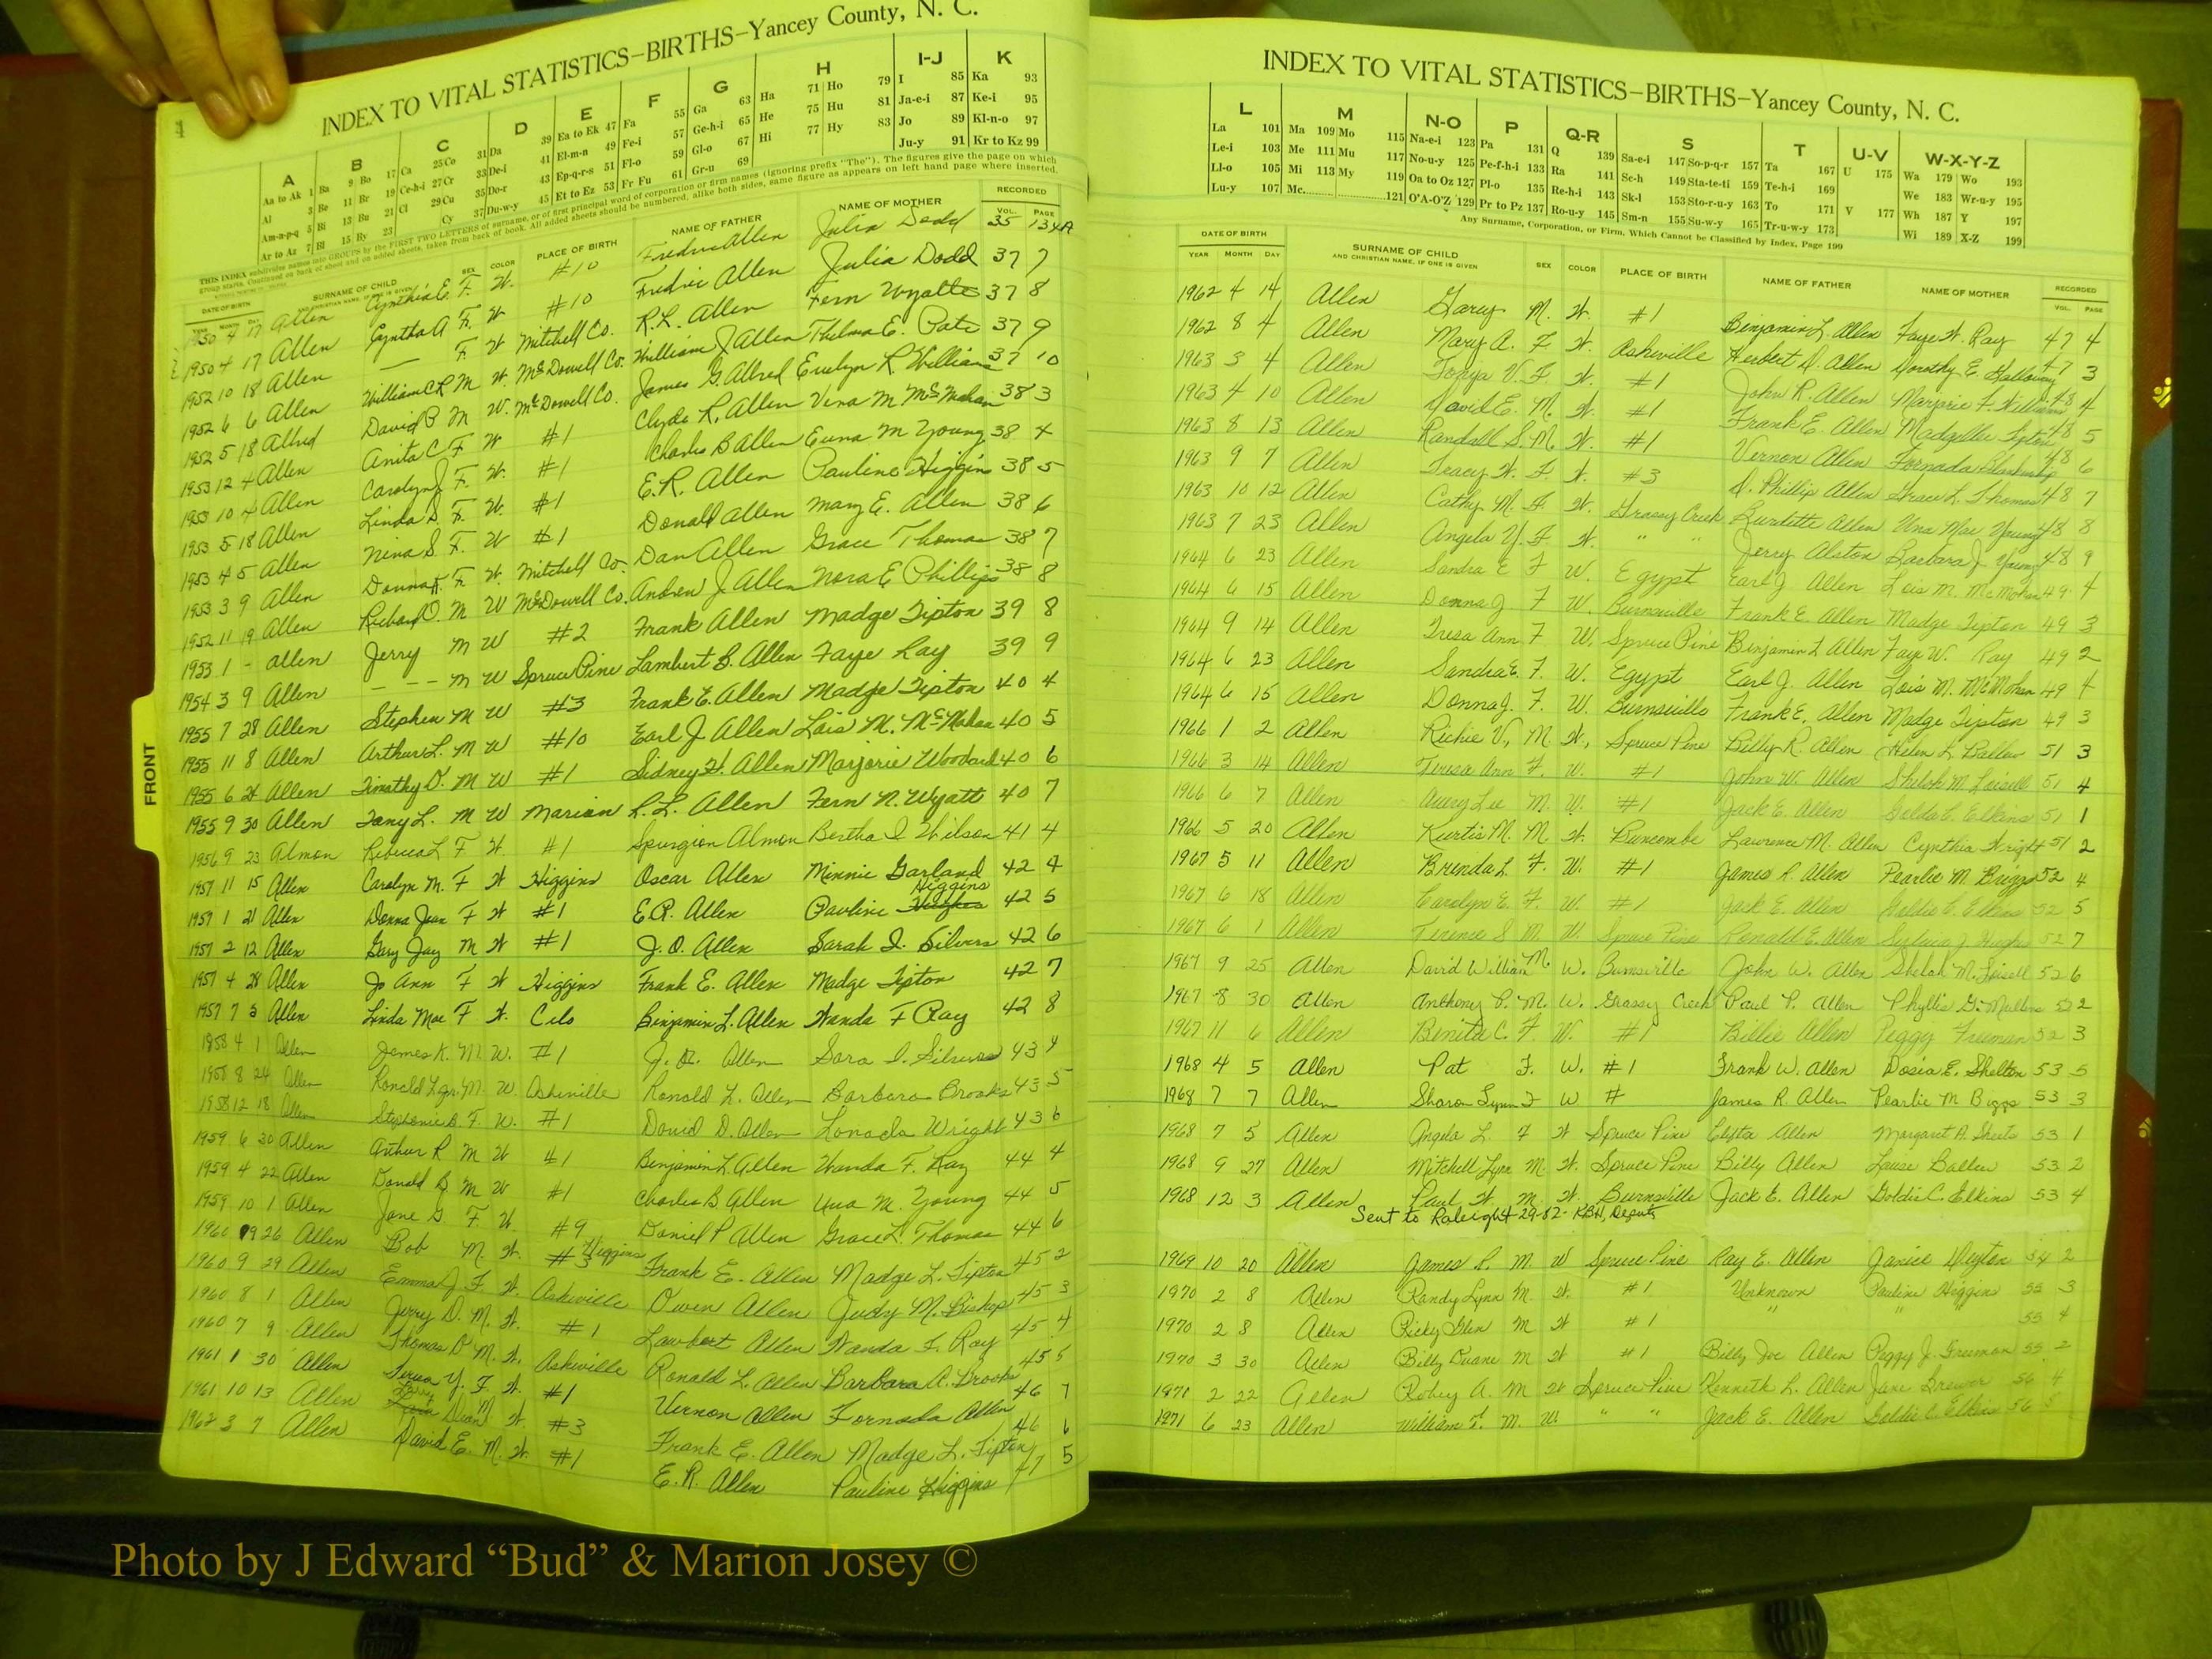 INDEX TO VITAL STATISTICS–BIRTHS–Yancey County, N. C.
A B C D E F G H I-J K
Aa to Ak 1 Ba 9 Bo 17 Ca 25 Co 31 Da 39 Ea to Ek 47 Fa 55 Ga 63 Ha 71 Ho 79 I 85 Ka 93
Al 3 Be 11 Br 19 Ce-h-i 27 Cr 33 De-i 41 El-m-n 49 Fe-i 57 Ge-h-i 65 He 75 Hu 81 Ja-e-i 87 Ke-i 95
Am-n-p-q 5 Bi 13 Bu 21 Cl 29 Cu 35 Do-r 43 Ep-q-r-s 51 Fl-o 59 Gl-o 67 Hi 77 Hy 83 Jo 89 Kl-n-o 97
Ar to Az 7 Bl 15 By 23 Cy 37 Du-w-y 45 Et to Ez 53 Fr Fu 61 Gr-u 69 Ju-y 91 Kr to Kz 99
THIS INDEX subdivides names into GROUPS by the FIRST TWO LETTERS of surname, or of first principal word of corporation or firm names (ignoring prefix "The"). The figures give the page on which
group starts. Continued on back of sheet and on added sheets, taken from back of book. All added sheets should be numbered, alike both sides, same figure as appears on left hand page where inserted.
DATE OF BIRTH SURNAME OF CHILD SEX COLOR PLACE OF BIRTH NAME OF FATHER NAME OF MOTHER RECORDED
YEAR MONTH DAY AND CHRISTIAN NAME, IF ONE IS GIVEN VOL. PAGE
1950 4 17 Allen Cynthia E. F. W. #10 Fredric Allen Julia Dodd 35 134A
1950 4 17 Allen Cyntha A F. W #10 Fredric Allen Julia Dodd 37 7
1952 10 18 Allen — F W Mitchell Co. R.L. Allen Fern Wyatte 37 8
1952 6 6 Allen William C R M W. McDowell Co. William J Allen Thelma E. Pate 37 9
1952 5 18 Allred David B M W. McDowell Co. James G. Allred Evelyn R. Williams 37 10
1953 12 4 Allen Anita C F W #1 Clyde R. Allen Vena M McMahan 38 3
1953 10 4 Allen Carolyn J F. W. #1 Charles B Allen Euna M Young 38 4
1953 5 18 Allen Linda S. F. W. #1 E.R. Allen Pauline Higgins 38 5
1953 4 5 Allen Nina S. F. W #1 Donald Allen Mary E. Allen 38 6
1953 3 9 Allen Donna K. F. W. Mitchell Co. Dan Allen Grace Thomas 38 7
1952 11 19 Allen Richard O. M W McDowell Co. Andrew J Allen Nora E Phillips 38 8
1953 1 - Allen Jerry M W #2 Frank Allen Madge Tipton 39 8
1954 3 9 Allen - - - M W Spruce Pine Lambert B. Allen Faye Ray 39 9
1955 7 28 Allen Stephen M W #3 Frank E. Allen Madge Tipton 40 4
1955 11 8 Allen Arthur L. M W #10 Earl J Allen Lois M. McMahan 40 5
1955 6 21 Allen Timothy D. M W #1 Sidney H. Allen Marjorie Woodard 40 6
1955 9 30 Allen Tony L. M W Marion R.L. Allen Fern N. Wyatt 40 7
1956 9 23 Almon Rebecca L F W. #1 Spurgion Almon Bertha I Wilson 41 4
1957 11 15 Allen Carolyn M. F W Higgins Oscar Allen Minnie Garland 42 4
1957 1 21 Allen Donna Jean F W #1 E.R. Allen Pauline Higgins 42 5
1957 2 12 Allen Gary Jay M W #1 J.O. Allen Sarah I. Silvers 42 6
1957 4 28 Allen Jo Ann F W Higgins Frank E. Allen Madge Tipton 42 7
1957 7 3 Allen Linda Mae F W. Celo Benjimin L. Allen Wanda F Ray 42 8
1958 4 1 Allen James K. M. W. #1 J. O. Allen Sara I. Silvers 43 4
1958 8 24 Allen Ronald L. Jr. M. W Asheville Ronald L. Allen Barbara Brooks 43 5
1958 12 18 Allen Stephenie D. F. W. #1 David D. Allen Lonada Wright 43 6
1959 6 20 Allen Arthur R M W #1 Benjamin L. Allen Wanda F. Ray 44 4
1959 4 22 Allen Donald B M W #1 Charles B Allen Una M. Young 44 5
1959 10 1 Allen Jane G F. W. #9 Daniel P Allen Grace L. Thomas 44 6
1960 9 26 Allen Bob M W. #3 Higgins Frank E. Allen Madge L. Tipton 45 2
1960 9 29 Allen Emma J F. W. Asheville Owen Allen Judy M. Bishop 45 3
1960 8 1 Allen Jerry D. M. W. #1 Lambert Allen Wanda F. Ray 45 4
1960 7 9 Allen Thomas D M. W. Asheville Ronald L. Allen Barbara A. Brooks 45 5
1961 1 30 Allen Teresa Y. F. W. #1 Vernon Allen Fornada Allen 46 7
1961 10 13 Allen Larry Dean M. W. #3 Frank E. Allen Madge L. Tipton 46 6
1962 3 7 Allen David E. M. W. #1 E.R. Allen Pauline Higgins 47 5
FRONT
INDEX TO VITAL STATISTICS–BIRTHS–Yancey County, N. C.
L M N-O P Q-R S T U-V W-X-Y-Z
La 101 Ma 109 Mo 115 Na-e-i 123 Pa 131 Q 139 Sa-e-i 147 So-p-q-r 157 Ta 167 U 175 Wa 179 Wo 193
Le-i 103 Me 111 Mu 117 No-u-y 125 Pe-f-h-i 133 Ra 141 Sc-h 149 Sta-te-ti 159 Te-h-i 169 We 183 Wr-u-y 195
Ll-o 105 Mi 113 My 119 Oa to Oz 127 Pl-o 135 Re-h-i 143 Sk-l 153 Sto-r-u-y 163 To 171 V 177 Wh 187 Y 197
Lu-y 107 Mc 121 O'A-O'Z 129 Pr to Pz 137 Ro-u-y 145 Sm-n 155 Su-w-y 165 Tr-u-w-y 173 Wi 189 X-Z 199
Any Surname, Corporation, or Firm, Which Cannot be Classified by Index, Page 199
DATE OF BIRTH SURNAME OF CHILD SEX COLOR PLACE OF BIRTH NAME OF FATHER NAME OF MOTHER RECORDED
YEAR MONTH DAY AND CHRISTIAN NAME, IF ONE IS GIVEN VOL. PAGE
1962 4 14 Allen Garey M. W. #1 Binjamin L. Allen Faye W. Ray 47 4
1962 8 4 Allen Mary A. F. W. Asheville Herbert D. Allen Dorothy E. Galloway 47 3
1963 3 4 Allen Tonya V. F. W. #1 John R. Allen Marjorie F. Williams 48 4
1963 4 10 Allen David E. M. W. #1 Frank E. Allen Madge Tipton 48 5
1963 8 13 Allen Randall S. M. W. #1 Vernon Allen Fornada Blankenship 48 6
1963 9 7 Allen Tracey W. F. W. #3 D. Phillip Allen Grace L. Thomas 48 7
1963 10 12 Allen Cathy M. F. W. Grassy Creek Burdette Allen Una Mae Young 48 8
1963 7 23 Allen Angela Y. F. W. " " Jerry Alston Barbara J Young 48 9
1964 6 23 Allen Sandra E F W. Egypt Earl J. Allen Lois M. McMohan 49 4
1964 6 15 Allen Donna J F W. Burnsville Frank E. Allen Madge Tipton 49 3
1964 9 14 Allen Tresa Ann F W. Spruce Pine Benjamin L Allen Faye W. Ray 49 2
1964 6 23 Allen Sandra E. F. W. Egypt Earl J. Allen Lois M. McMohan 49 4
1964 6 15 Allen Donna J. F. W. Burnsville Frank E. Allen Madge Tipton 49 3
1966 1 2 Allen Richie V. M. W. Spruce Pine Billy R. Allen Helen L. Ballew 51 3
1966 3 14 Allen Teresa Ann F. W. #1 John W. Allen Shelah M. Loisell 51 4
1966 6 7 Allen Avery Lee M. W. #1 Jack E. Allen Goldie E. Elkins 51 1
1966 5 20 Allen Kurtis M. M. W. Buncombe Lawrence M. Allen Cynthia Wright 51 2
1967 5 11 Allen Brenda L. F. W. #1 James R. Allen Pearlie M. Briggs 52 4
1967 6 18 Allen Carolyn E. F. W. #1 Jack E. Allen Goldie E. Elkins 52 5
1967 6 1 Allen Terence S M W Spruce Pine Ronald E. Allen Sylvia J. Hughes 52 7
1967 9 25 Allen David William M. W. Burnsville John W. Allen Shelah M. Loisell 52 6
1967 8 30 Allen Anthony P. M. W. Grassy Creek Paul P. Allen Phyllis G. Mullins 52 2
1967 11 6 Allen Benita C. F. W. #1 Billie Allen Peggy Freeman 52 3
1968 4 5 Allen Pat F. W. #1 Frank W. Allen Dosia E. Shelton 53 5
1968 7 7 Allen Sharon Lynn F W # James R. Allen Pearlie M Biggs 53 3
1968 7 5 Allen Angela L. F W Spruce Pine Clifton Allen Margaret A. Sheets 53 1
1968 9 27 Allen Mitchell Lynn M. W. Spruce Pine Billy Allen Louise Ballew 53 2
1968 12 3 Allen Paul W. M. W. Burnsville Jack E. Allen Goldie C. Elkins 53 4
Sent to Raleigh 4-29-82- KBH, Deputy
1969 10 20 Allen James R. M. W Spruce Pine Ray E. Allen Janice Deyton 54 2
1970 2 8 Allen Randy Lynn M. W. #1 Unknown Pauline Higgins 55 3
1970 2 8 Allen Ricky Glen M W #1 " " 55 4
1970 3 30 Allen Billy Duane M W #1 Billy Joe Allen Peggy J. Freeman 55 2
1971 2 22 Allen Robey A. M W Spruce Pine Kenneth L. Allen Jane Brewer 56 4
1971 6 23 Allen William T. M. W. " " Jack E. Allen Goldie C. Elkins 56 5
Photo by J Edward “Bud” & Marion Josey ©